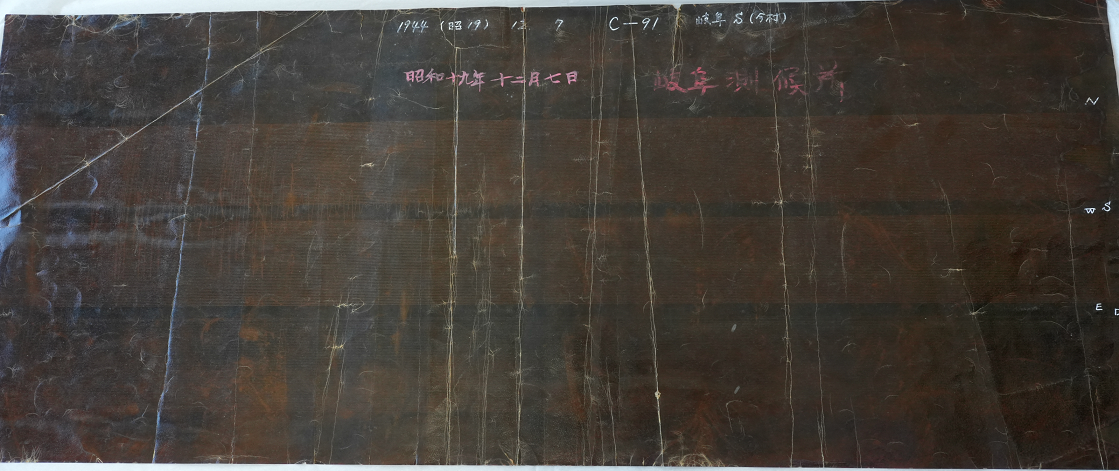 1944 (昭19) 12 7 C-91 岐阜 S (今村)
昭和十九年十二月七日 岐阜測候所
N
W S
E D